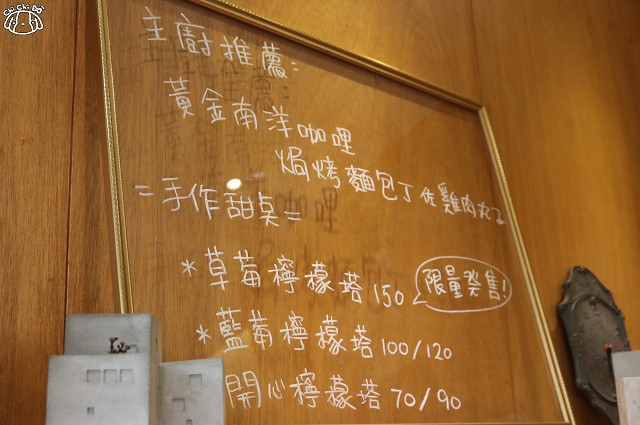 Chi Chi Bo
主廚推薦：
黃金南洋咖哩
焗烤麵包丁佐雞肉丸子
=手作甜桌=
*草莓檸檬塔 150 限量発售!
*藍莓檸檬塔 100/120
開心檸檬塔 70/90